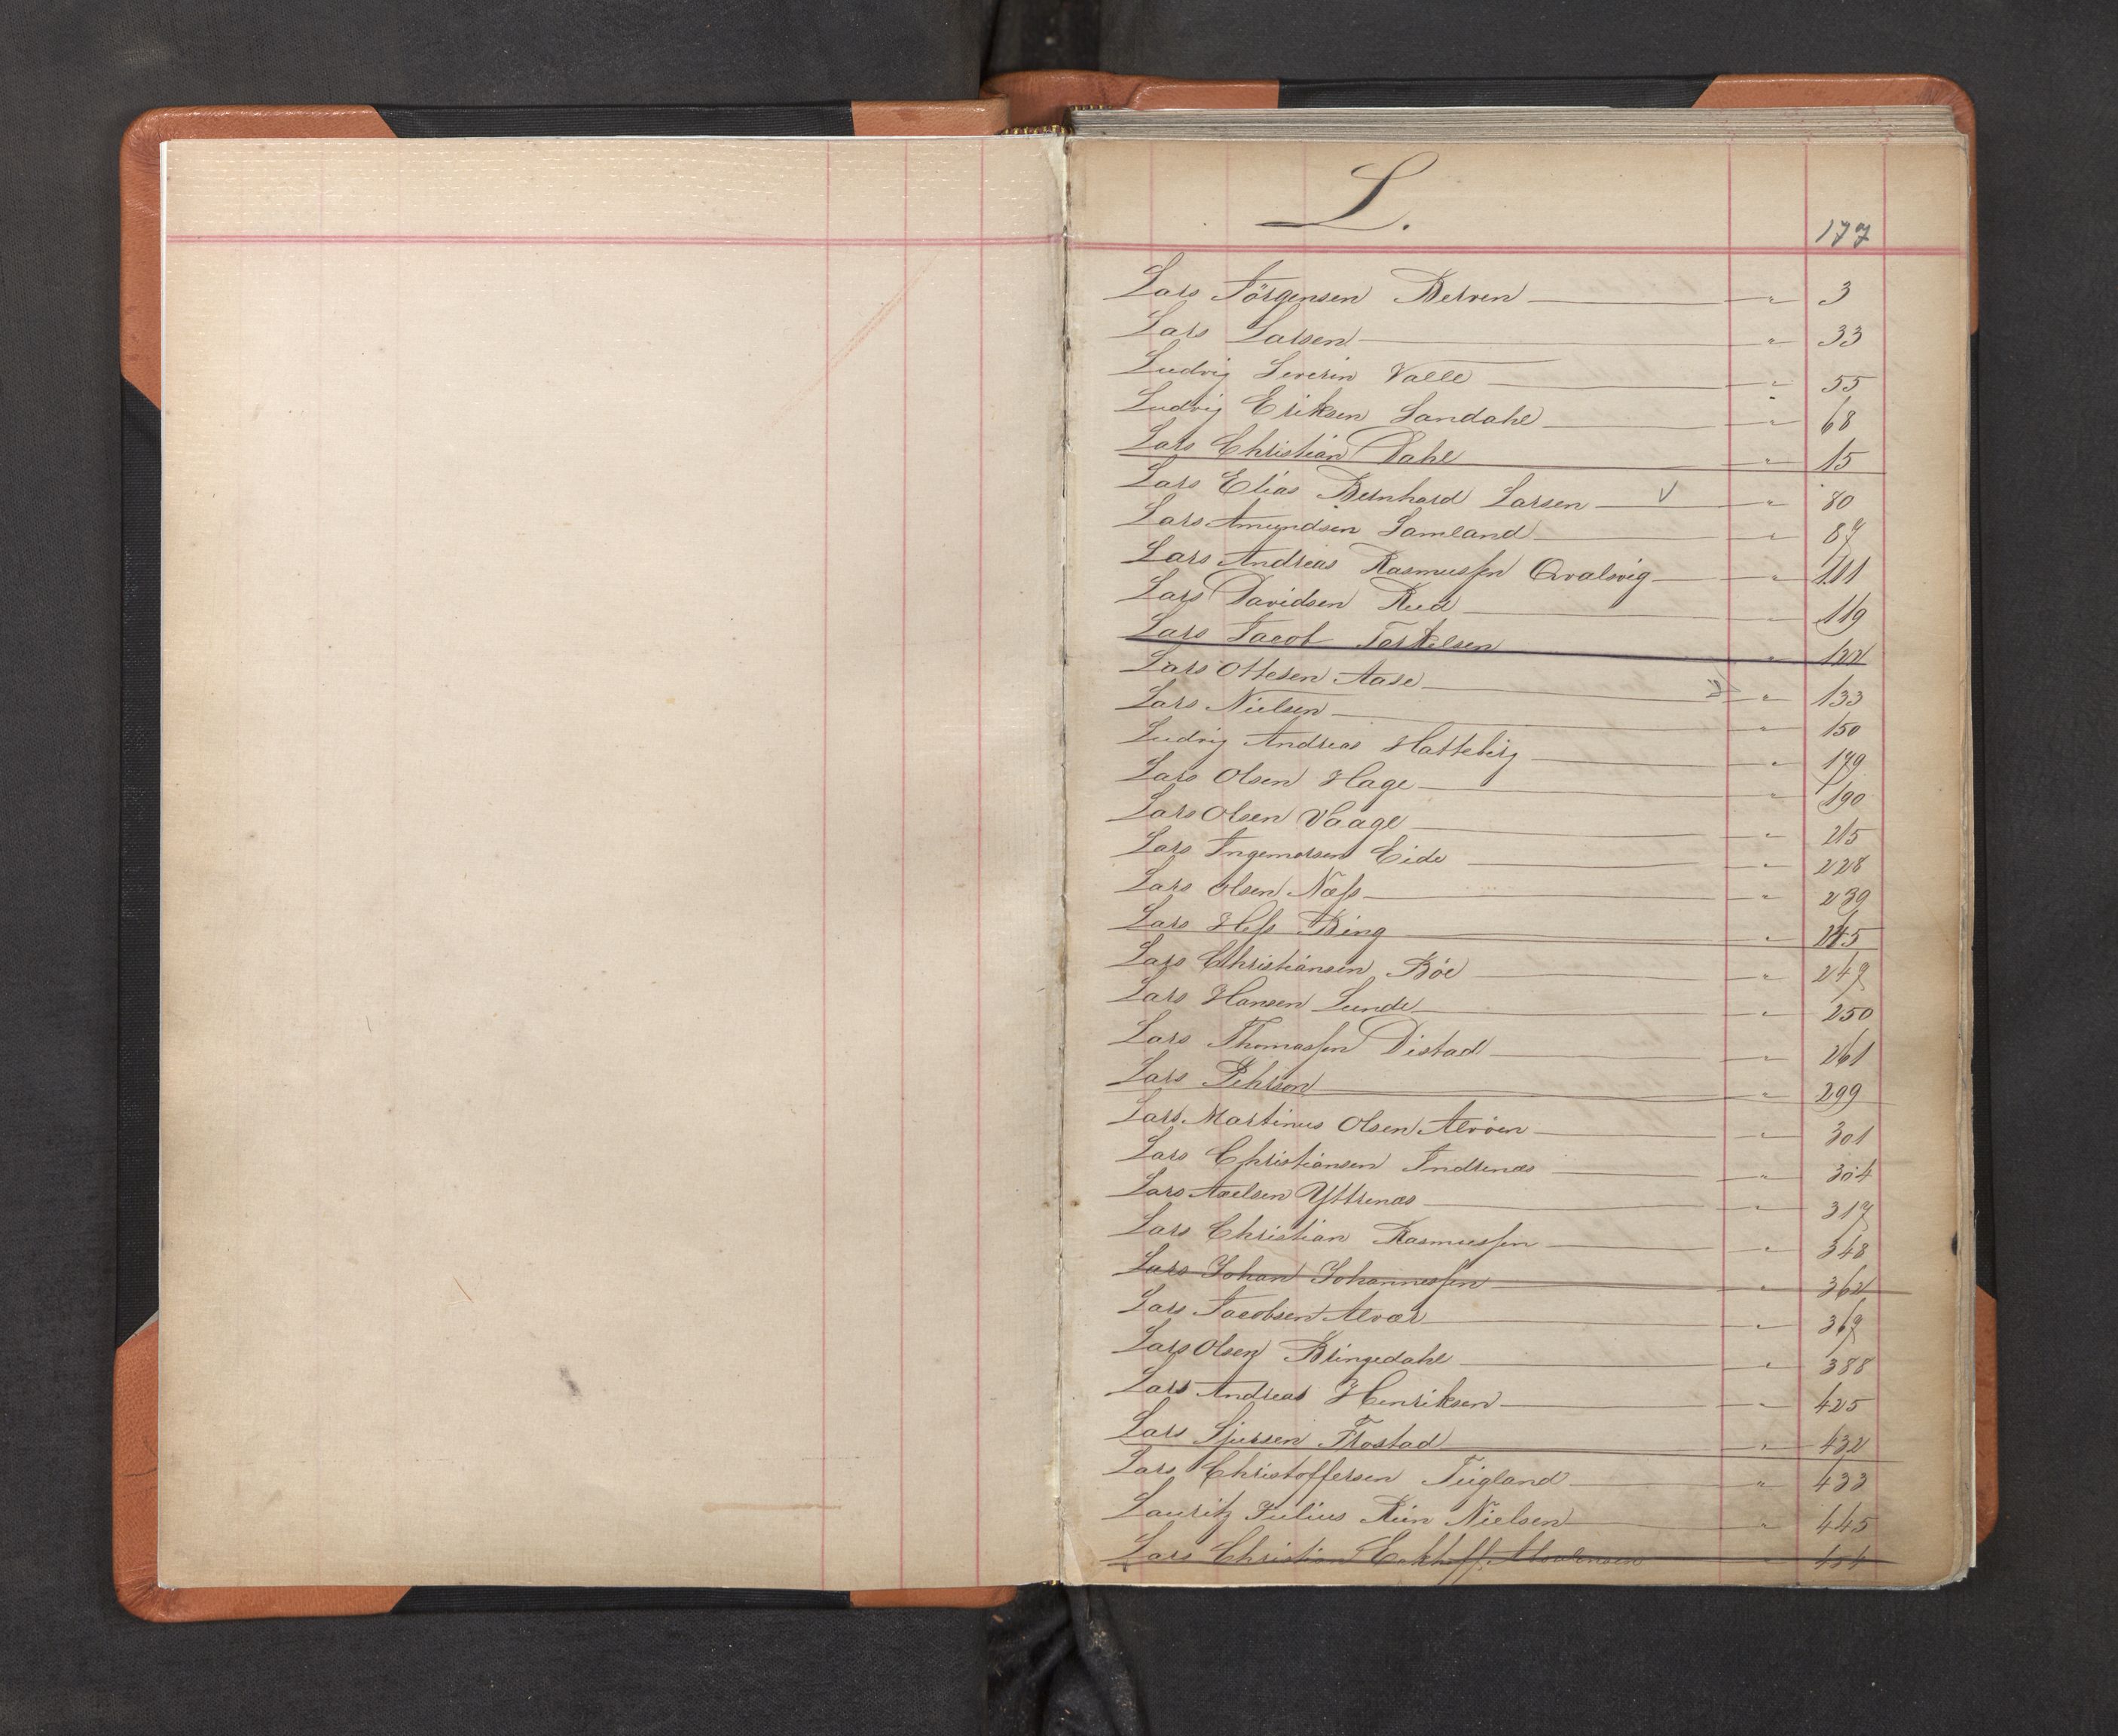 L.
177
Lars Jörgensen Berven " 3
Lars Larsen " 33
Ludvig Severin Valle " 55
Ludvig Eriksen Landahl " 68
Lars Christian Dahl " 15
Lars Elias Bernhard Larsen V " 80
Lars Amundsen Samland " 87
Lars Andreas Rasmussen Qvalsvig " 111
Lars Davidsen Rud " 119
Lars Jacob Torkelsen " 122
Lars Ottesen Aase " 133
Lars Nielsen " 150
Ludvig Andreas Hatteberg " 179
Lars Olsen Hage " 190
Lars Olsen Vaage " 215
Lars Ingemorsen Eide " 228
Lars Olsen Næss " 239
Lars Hess Bing " 245
Lars Christiansen Böe " 247
Lars Hansen Lunde " 250
Lars Thomassen Distad " 261
Lars Pehrson " 299
Lars Martinus Olsen Alvöen " 301
Lars Christiansen Indrenæs " 304
Lars Axelsen Yttrenæs " 317
Lars Christian Rasmussen " 348
Lars Johan Johannessen " 362
Lars Jacobsen Alvær " 367
Lars Olsen Bringedahl " 388
Lars Andreas Henriksen " 425
Lars Sjursen Frostad " 432
Lars Christoffersen Teigland " 433
Lauritz Julius Nielsen " 445
Lars Christian Eckhoff " 454